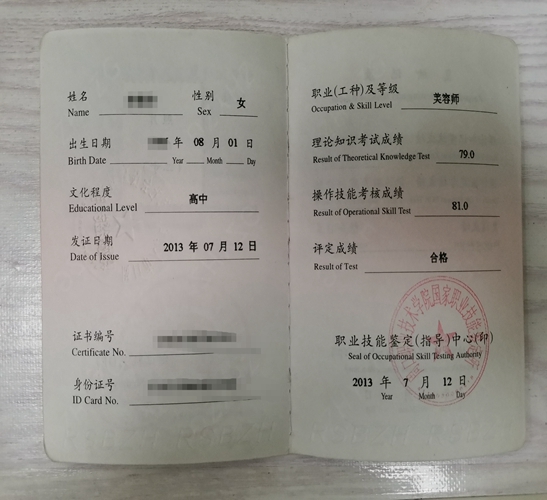 姓名
Name
性别 女
Sex
出生日期 年 08 月 01 日
Birth Date Year Month Day
文化程度 高中
Educational Level
发证日期 2013 年 07 月 12 日
Date of Issue
证书编号
Certificate No.
身份证号
ID Card No.
职业(工种)及等级 美容师
Occupation & Skill Level
理论知识考试成绩 79.0
Result of Theoretical Knowledge Test
操作技能考核成绩 81.0
Result of Operational Skill Test
评定成绩 合格
Result of Test
技术学院国家职业技能
职业技能鉴定(指导)中心(印)
Seal of Occupational Skill Testing Authority
2013 年 7 月 12 日
Year Month Day